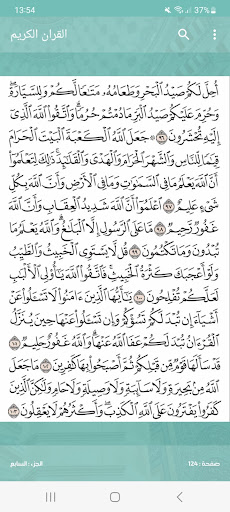 13:54
37%
القران الكريم
أُحِلَّ لَكُمْ صَيْدُ ٱلْبَحْرِ وَطَعَامُهُۥ مَتَٰعًا لَّكُمْ وَلِلسَّيَّارَةِ ۖ
وَحُرِّمَ عَلَيْكُمْ صَيْدُ ٱلْبَرِّ مَا دُمْتُمْ حُرُمًا ۗ وَٱتَّقُوا۟ ٱللَّهَ ٱلَّذِىٓ
إِلَيْهِ تُحْشَرُونَ ٩٦ ۞ جَعَلَ ٱللَّهُ ٱلْكَعْبَةَ ٱلْبَيْتَ ٱلْحَرَامَ
قِيَٰمًا لِّلنَّاسِ وَٱلشَّهْرَ ٱلْحَرَامَ وَٱلْهَدْىَ وَٱلْقَلَٰٓئِدَ ۚ ذَٰلِكَ لِتَعْلَمُوٓا۟
أَنَّ ٱللَّهَ يَعْلَمُ مَا فِى ٱلسَّمَٰوَٰتِ وَمَا فِى ٱلْأَرْضِ وَأَنَّ ٱللَّهَ بِكُلِّ
شَىْءٍ عَلِيمٌ ٩٧ ٱعْلَمُوٓا۟ أَنَّ ٱللَّهَ شَدِيدُ ٱلْعِقَابِ وَأَنَّ ٱللَّهَ
غَفُورٌ رَّحِيمٌ ٩٨ مَّا عَلَى ٱلرَّسُولِ إِلَّا ٱلْبَلَٰغُ ۗ وَٱللَّهُ يَعْلَمُ مَا
تُبْدُونَ وَمَا تَكْتُمُونَ ٩٩ قُل لَّا يَسْتَوِى ٱلْخَبِيثُ وَٱلطَّيِّبُ
وَلَوْ أَعْجَبَكَ كَثْرَةُ ٱلْخَبِيثِ ۚ فَٱتَّقُوا۟ ٱللَّهَ يَٰٓأُو۟لِى ٱلْأَلْبَٰبِ
لَعَلَّكُمْ تُفْلِحُونَ ١٠٠ يَٰٓأَيُّهَا ٱلَّذِينَ ءَامَنُوا۟ لَا تَسْـَٔلُوا۟ عَنْ
أَشْيَآءَ إِن تُبْدَ لَكُمْ تَسُؤْكُمْ وَإِن تَسْـَٔلُوا۟ عَنْهَا حِينَ يُنَزَّلُ
ٱلْقُرْءَانُ تُبْدَ لَكُمْ عَفَا ٱللَّهُ عَنْهَا ۗ وَٱللَّهُ غَفُورٌ حَلِيمٌ ١٠١
قَدْ سَأَلَهَا قَوْمٌ مِّن قَبْلِكُمْ ثُمَّ أَصْبَحُوا۟ بِهَا كَٰفِرِينَ ١٠٢ مَا جَعَلَ
ٱللَّهُ مِنۢ بَحِيرَةٍ وَلَا سَآئِبَةٍ وَلَا وَصِيلَةٍ وَلَا حَامٍ ۙ وَلَٰكِنَّ ٱلَّذِينَ
كَفَرُوا۟ يَفْتَرُونَ عَلَى ٱللَّهِ ٱلْكَذِبَ ۖ وَأَكْثَرُهُمْ لَا يَعْقِلُونَ ١٠٣
صفحة : 124
الجزء : السابع